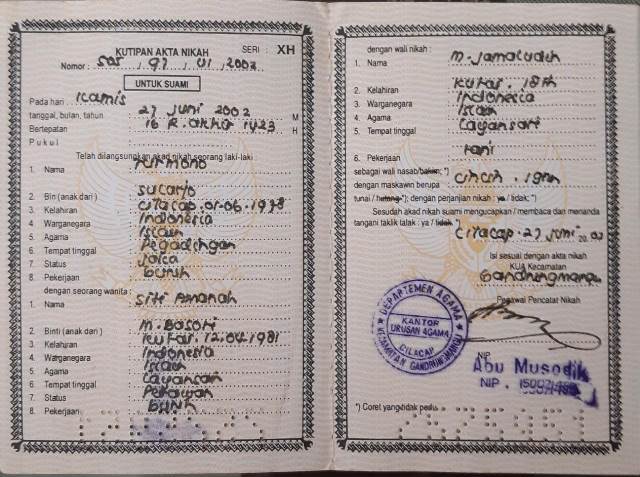 KUTIPAN AKTA NIKAH SERI : XH
Nomor : 505 , 97 , VI , 2002
UNTUK SUAMI
Pada hari : Kamis
tanggal, bulan, tahun 27 Juni 2002 M
Bertepatan 16 R. akhir 1423 H
Pukul :
Telah dilangsungkan akad nikah seorang laki-laki
1. Nama
2. Bin (anak dari) : sucarjo
3. Kelahiran : cilacap. 01-06-1978
4. Warganegara : Indonesia
5. Agama : Islam
6. Tempat tinggal : Pegadingan
7. Status : Jejaka
8. Pekerjaan : buruh
dengan seorang wanita :
1. Nama : Siti Amanah
2. Binti (anak dari) : M. Basori
3. Kelahiran : 12.04.1981
4. Warganegara : Indonesia
5. Agama : Islam
6. Tempat tinggal
7. Status : Perawan
8. Pekerjaan : buruh
dengan wali nikah :
1. Nama : M. Jamaludin
2. Kelahiran
3. Warganegara : Indonesia
4. Agama : Islam
5. Tempat tinggal : Layansari
6. Pekerjaan : tani
sebagai wali nasab/hakim; *)
dengan maskawin berupa
tunai / hutang*); dengan perjanjian nikah : ya / tidak; *)
Sesudah akad nikah suami mengucapkan / membaca dan menanda
tangani taklik talak : ya / tidak *)
Cilacap, 27 Juni 2002
Isi sesuai dengan akta nikah
KUA Kecamatan
Gandrungmangu
Pegawai Pencatat Nikah
DEPARTEMEN AGAMA
KANTOR
URUSAN AGAMA
CILACAP
KECAMATAN GANDRUNGMANGU
NIP
Abu Musodik
NIP .
*) Coret yang tidak perlu